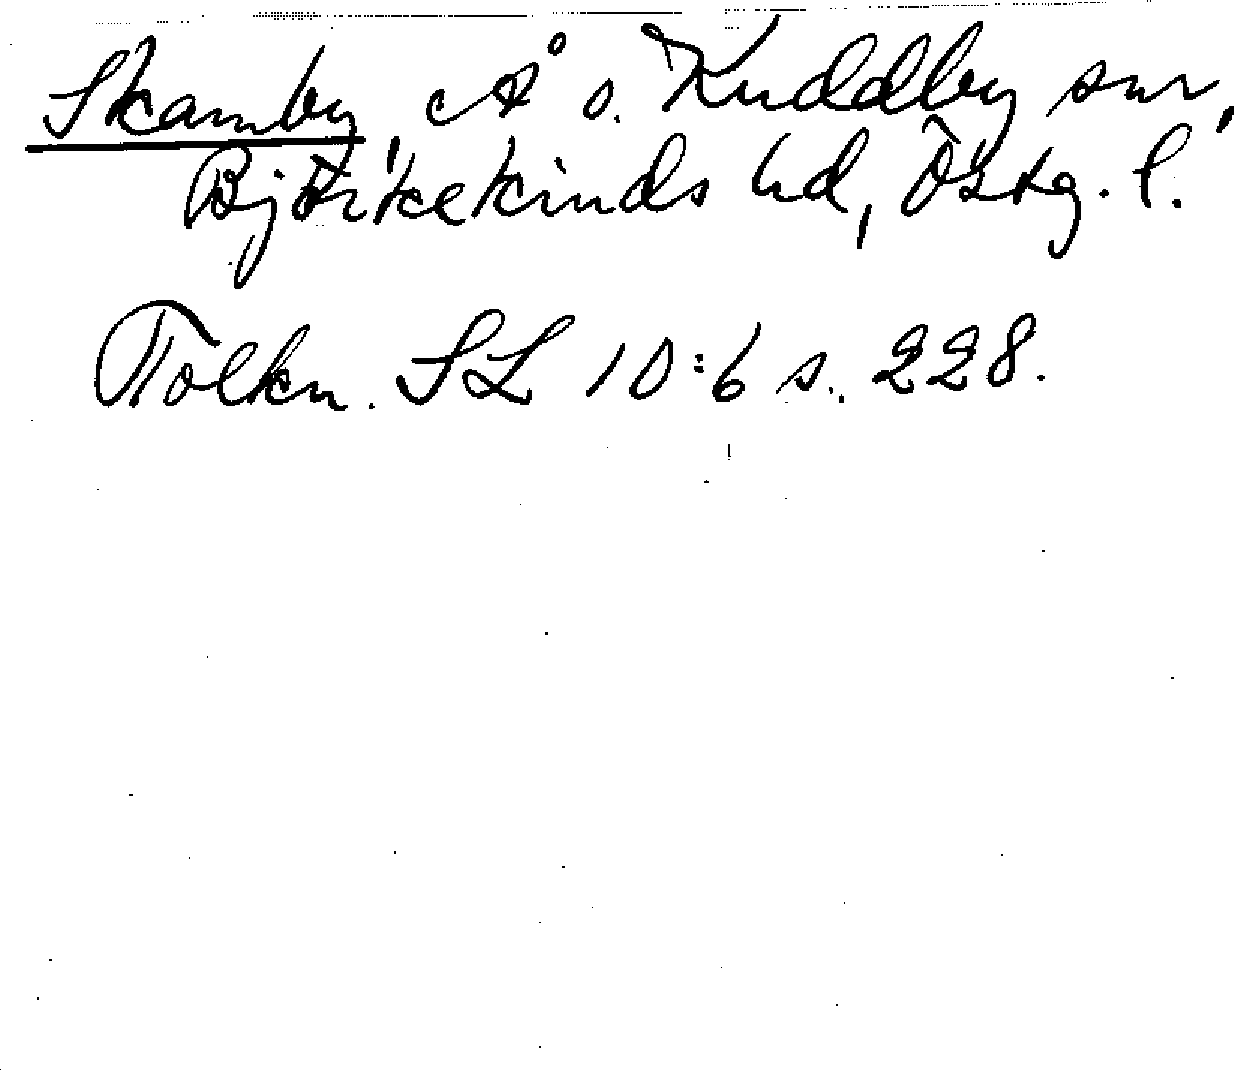 Skamby, Å o. Kuddby snr,
Björkekinds hd, Östg. l.
Tolkn. SL 10:6 s. 228.